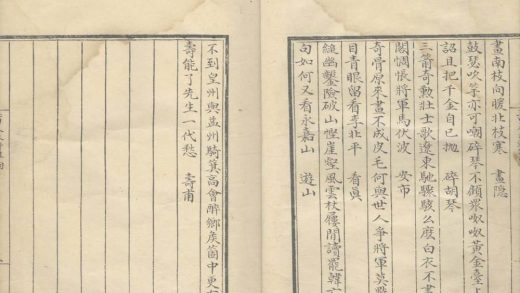 畫南枝向暖北枝寒 畫隐
鼓瑟吹竽亦可嗤碎琴不顧眾呶呶黃金臺
詔且把千金自己拋 碎胡琴
三箭奇勳壯士歌遼東馳驟駭么麽白衣不畫
閣惆悵將軍馬伏波 安市
奇骨原來畫不成皮毛何與世人爭將軍莫
目青眼留看李北平 看眞
縋幽鑿險破山慳崖壑風雲杖屨閒讀罷韓
句如何又看永嘉山 遊山
不到皇州與盂州騎箕高會醉鄉侯箇中更
壽能了先生一代愁 壽甫